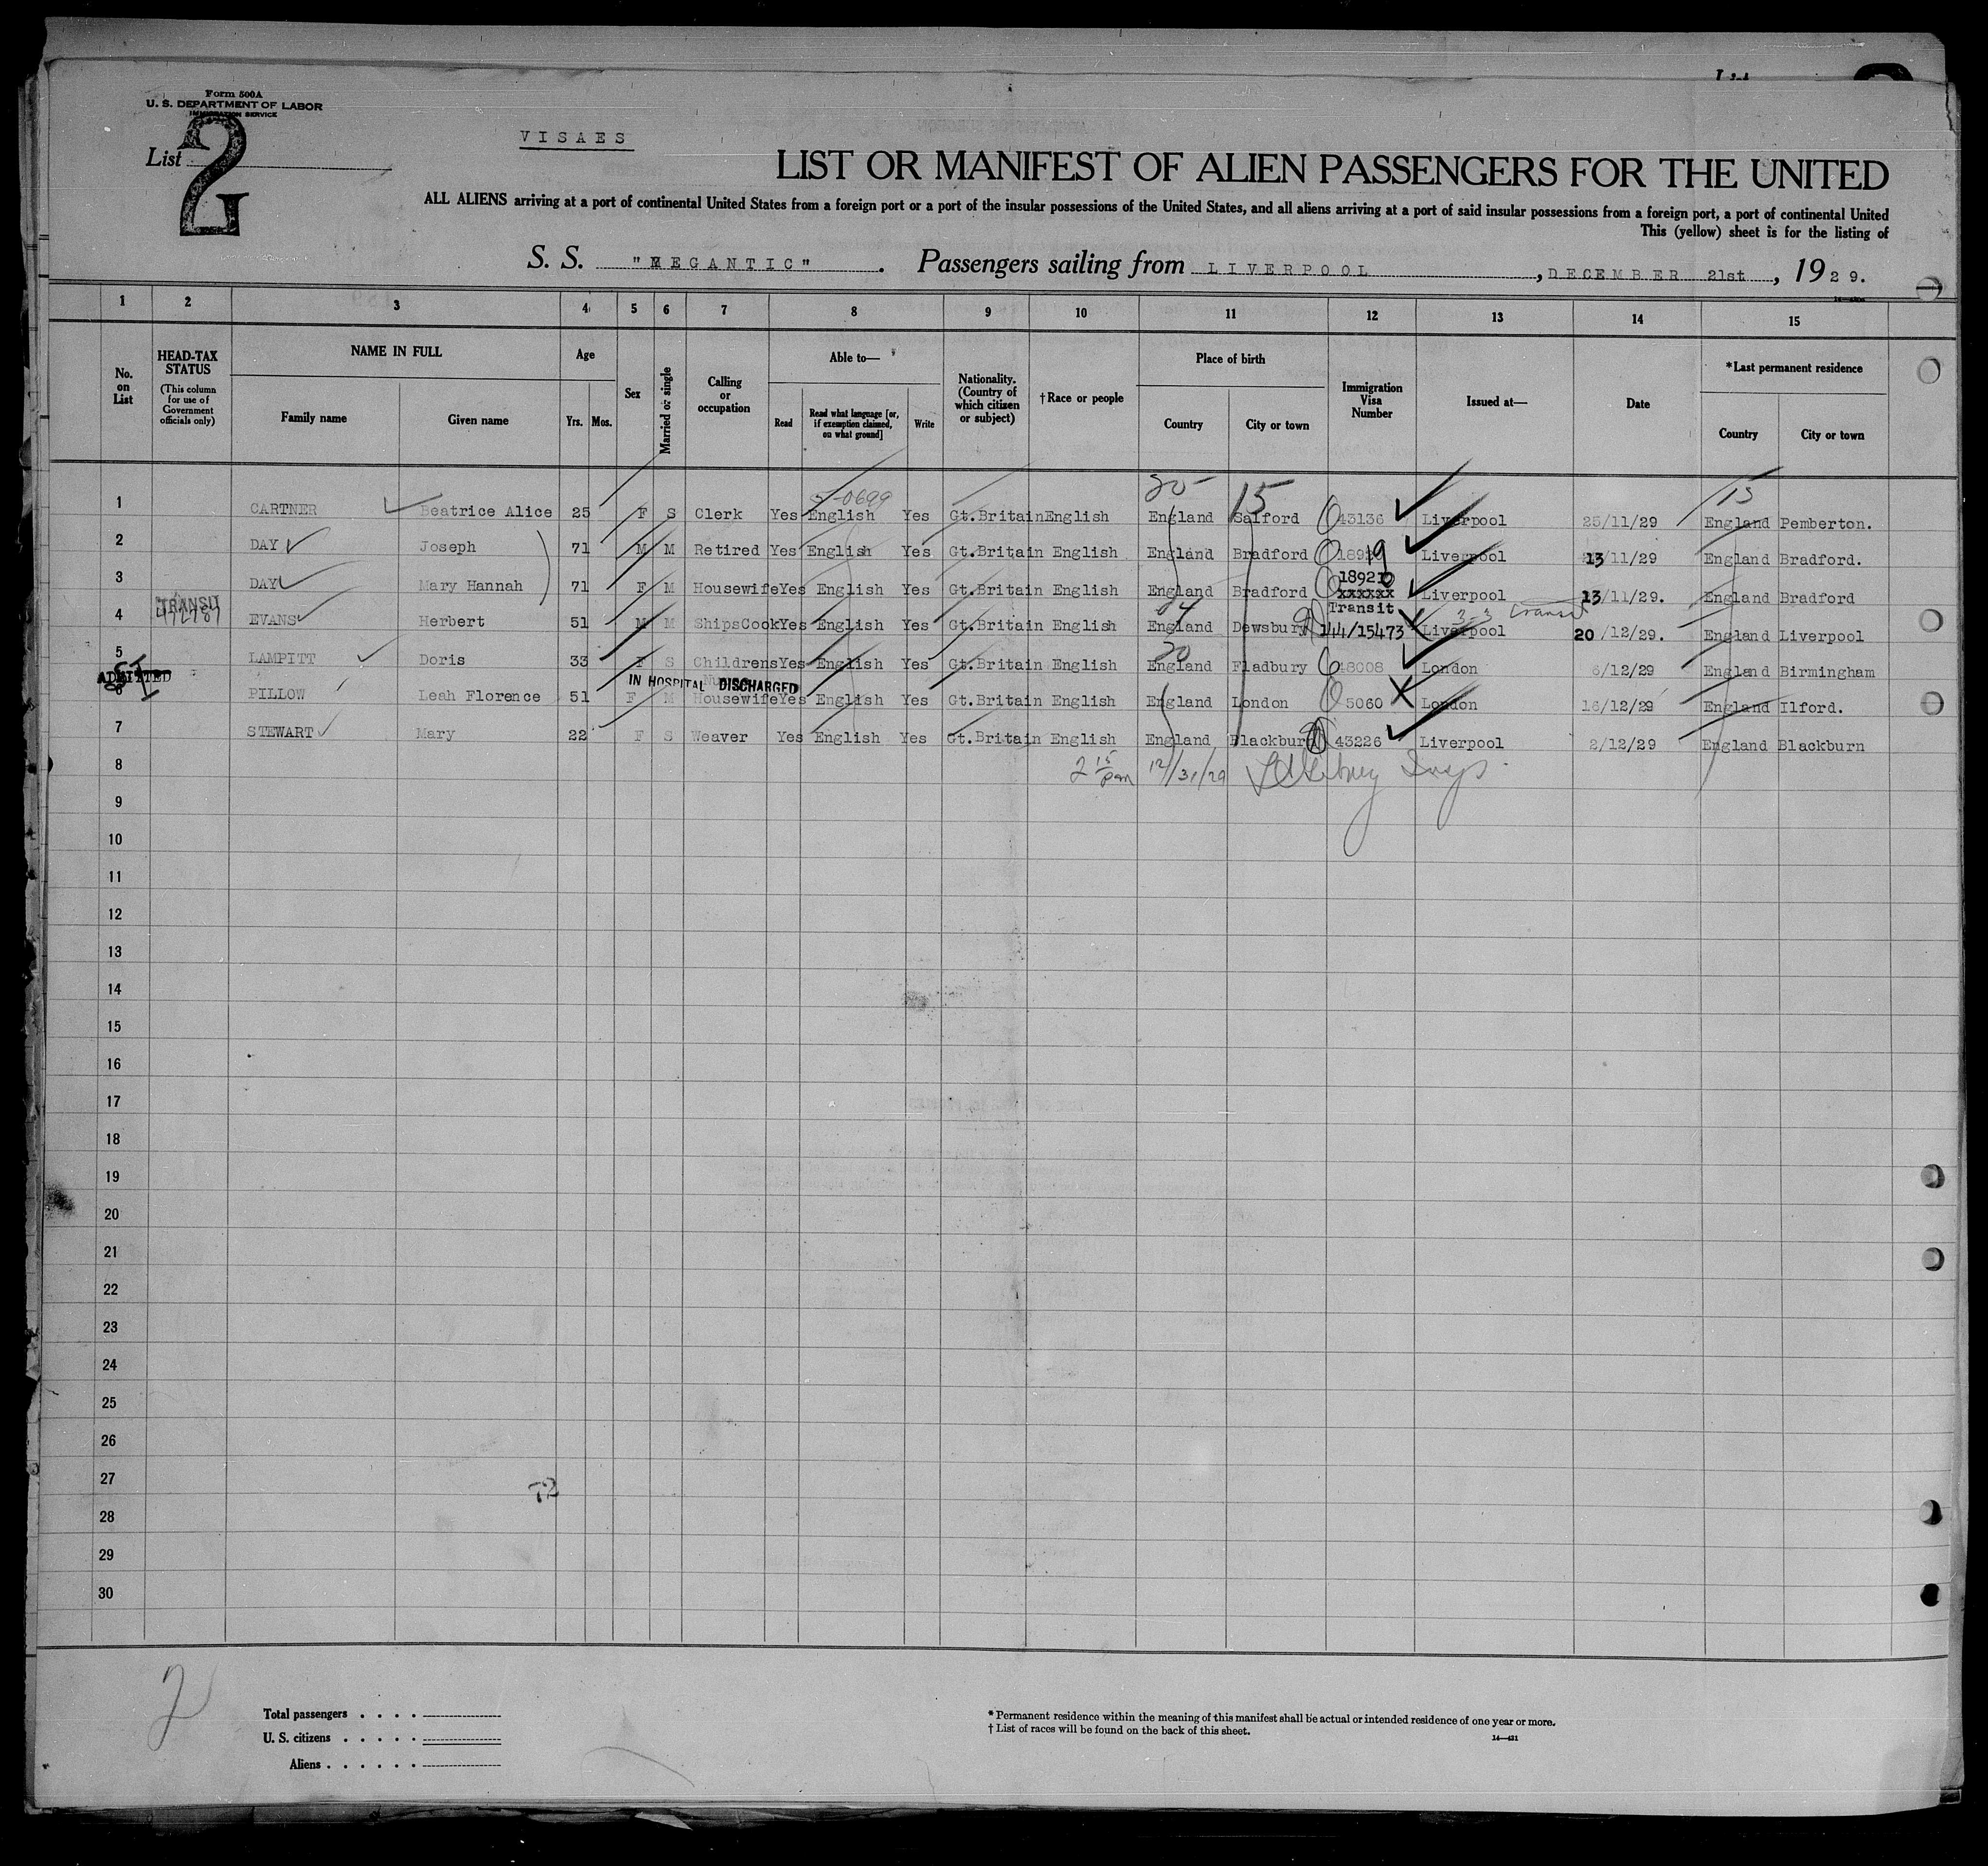 Form 500A
U. S. DEPARTMENT OF LABOR
IMMIGRATION SERVICE
List 2
VISAES
LIST OR MANIFEST OF ALIEN PASSENGERS FOR THE UNITED
ALL ALIENS arriving at a port of continental United States from a foreign port or a port of the insular possessions of the United States, and all aliens arriving at a port of said insular possessions from a foreign port, a port of continental United
This (yellow) sheet is for the listing of
S. S. "MEGANTIC". Passengers sailing from LIVERPOOL, DECEMBER 21st, 1929.
1 2 3 4 5 6 7 8 9 10 11 12 13 14 15
No. on List
HEAD-TAX STATUS
(This column for use of Government officials only)
NAME IN FULL
Family name Given name
Age
Yrs. Mos.
Sex
Married or single
Calling or occupation
Able to—
Read
Read what language [or, if exemption claimed, on what ground]
Write
Nationality. (Country of which citizen or subject)
† Race or people
Place of birth
Country City or town
Immigration Visa Number
Issued at—
Date
* Last permanent residence
Country City or town
5-0699 20 15 15
1 CARTNER Beatrice Alice 25 F S Clerk Yes English Yes Gt.Britain English England Salford 43136 Liverpool 25/11/29 England Pemberton.
2 DAY Joseph 71 M M Retired Yes English Yes Gt.Britain English England Bradford 18919 Liverpool 13/11/29 England Bradford.
3 DAY Mary Hannah 71 F M Housewife Yes English Yes Gt.Britain English England Bradford 18920 xxxxxx Liverpool 13/11/29. England Bradford
TRANSIT Transit 3-3 transit
4 EVANS Herbert 51 M M ShipsCook Yes English Yes Gt.Britain English England Dewsbury 144/15473 Liverpool 20/12/29. England Liverpool
5 LAMPITT Doris 33 F S Childrens Yes English Yes Gt.Britain English England Fladbury 48008 London 6/12/29 England Birmingham
ADMITTED SI IN HOSPITAL DISCHARGED
6 PILLOW Leah Florence 51 F M Housewife Yes English Yes Gt.Britain English England London 5060 London 16/12/29 England Ilford.
7 STEWART Mary 22 F S Weaver Yes English Yes Gt.Britain English England Blackburn 43226 Liverpool 2/12/29 England Blackburn
8 2 15 pm 12/31/29
9
10
11
12
13
14
15
16
17
18
19
20
21
22
23
24
25
26
27
28
29
30
2
Total passengers
U. S. citizens
Aliens
* Permanent residence within the meaning of this manifest shall be actual or intended residence of one year or more.
† List of races will be found on the back of this sheet.
14—431